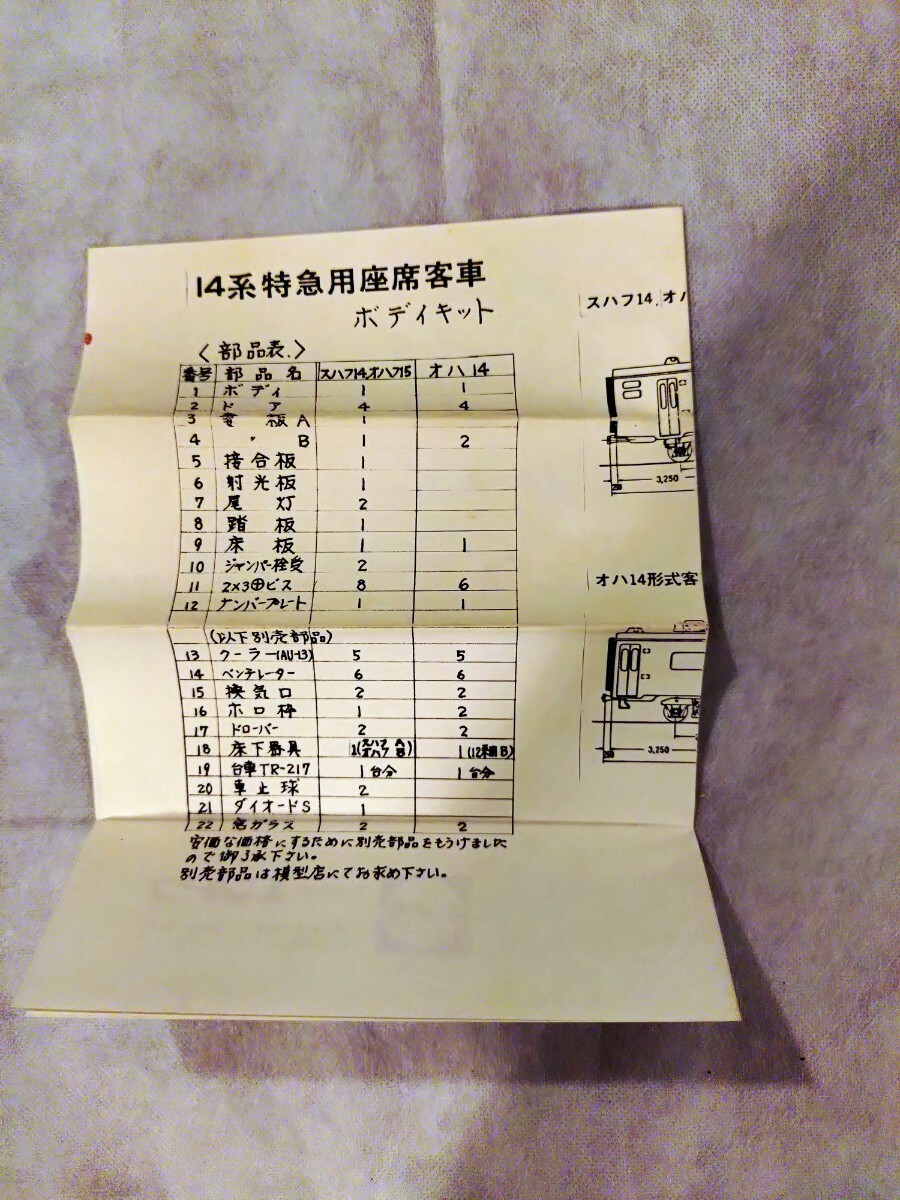 14系特急用座席客車
ボディキット
〈部品表.〉
番号 部品名 スハフ14,オハフ15 オハ14
1 ボディ 1 1
2 ドア 4 4
3 板A 1
4 〃 B 1 2
5 接合板 1
6 射光板 1
7 尾灯 2
8 踏板 1
9 床板 1 1
10 ジャンパー栓受 2
11 2×3⊕ビス 8 6
12 ナンバープレート 1 1
(以下別売部品)
13 クーラー(AU-13) 5 5
14 ベンチレーター 6 6
15 換気口 2 2
16 ホロ枠 1 2
17 ドローバー 2 2
18 床下器具 1(スハフA オハフB) 1(12系用B)
19 台車TR-217 1台分 1台分
20 車止球 2
21 ダイオードS 1
22 窓ガラス 2 2
安価な価格にするために別売部品をもうけました
ので御了承下さい。
別売部品は模型店にてお求め下さい。
スハフ14,オハ
3,250
オハ14形式客
3,250